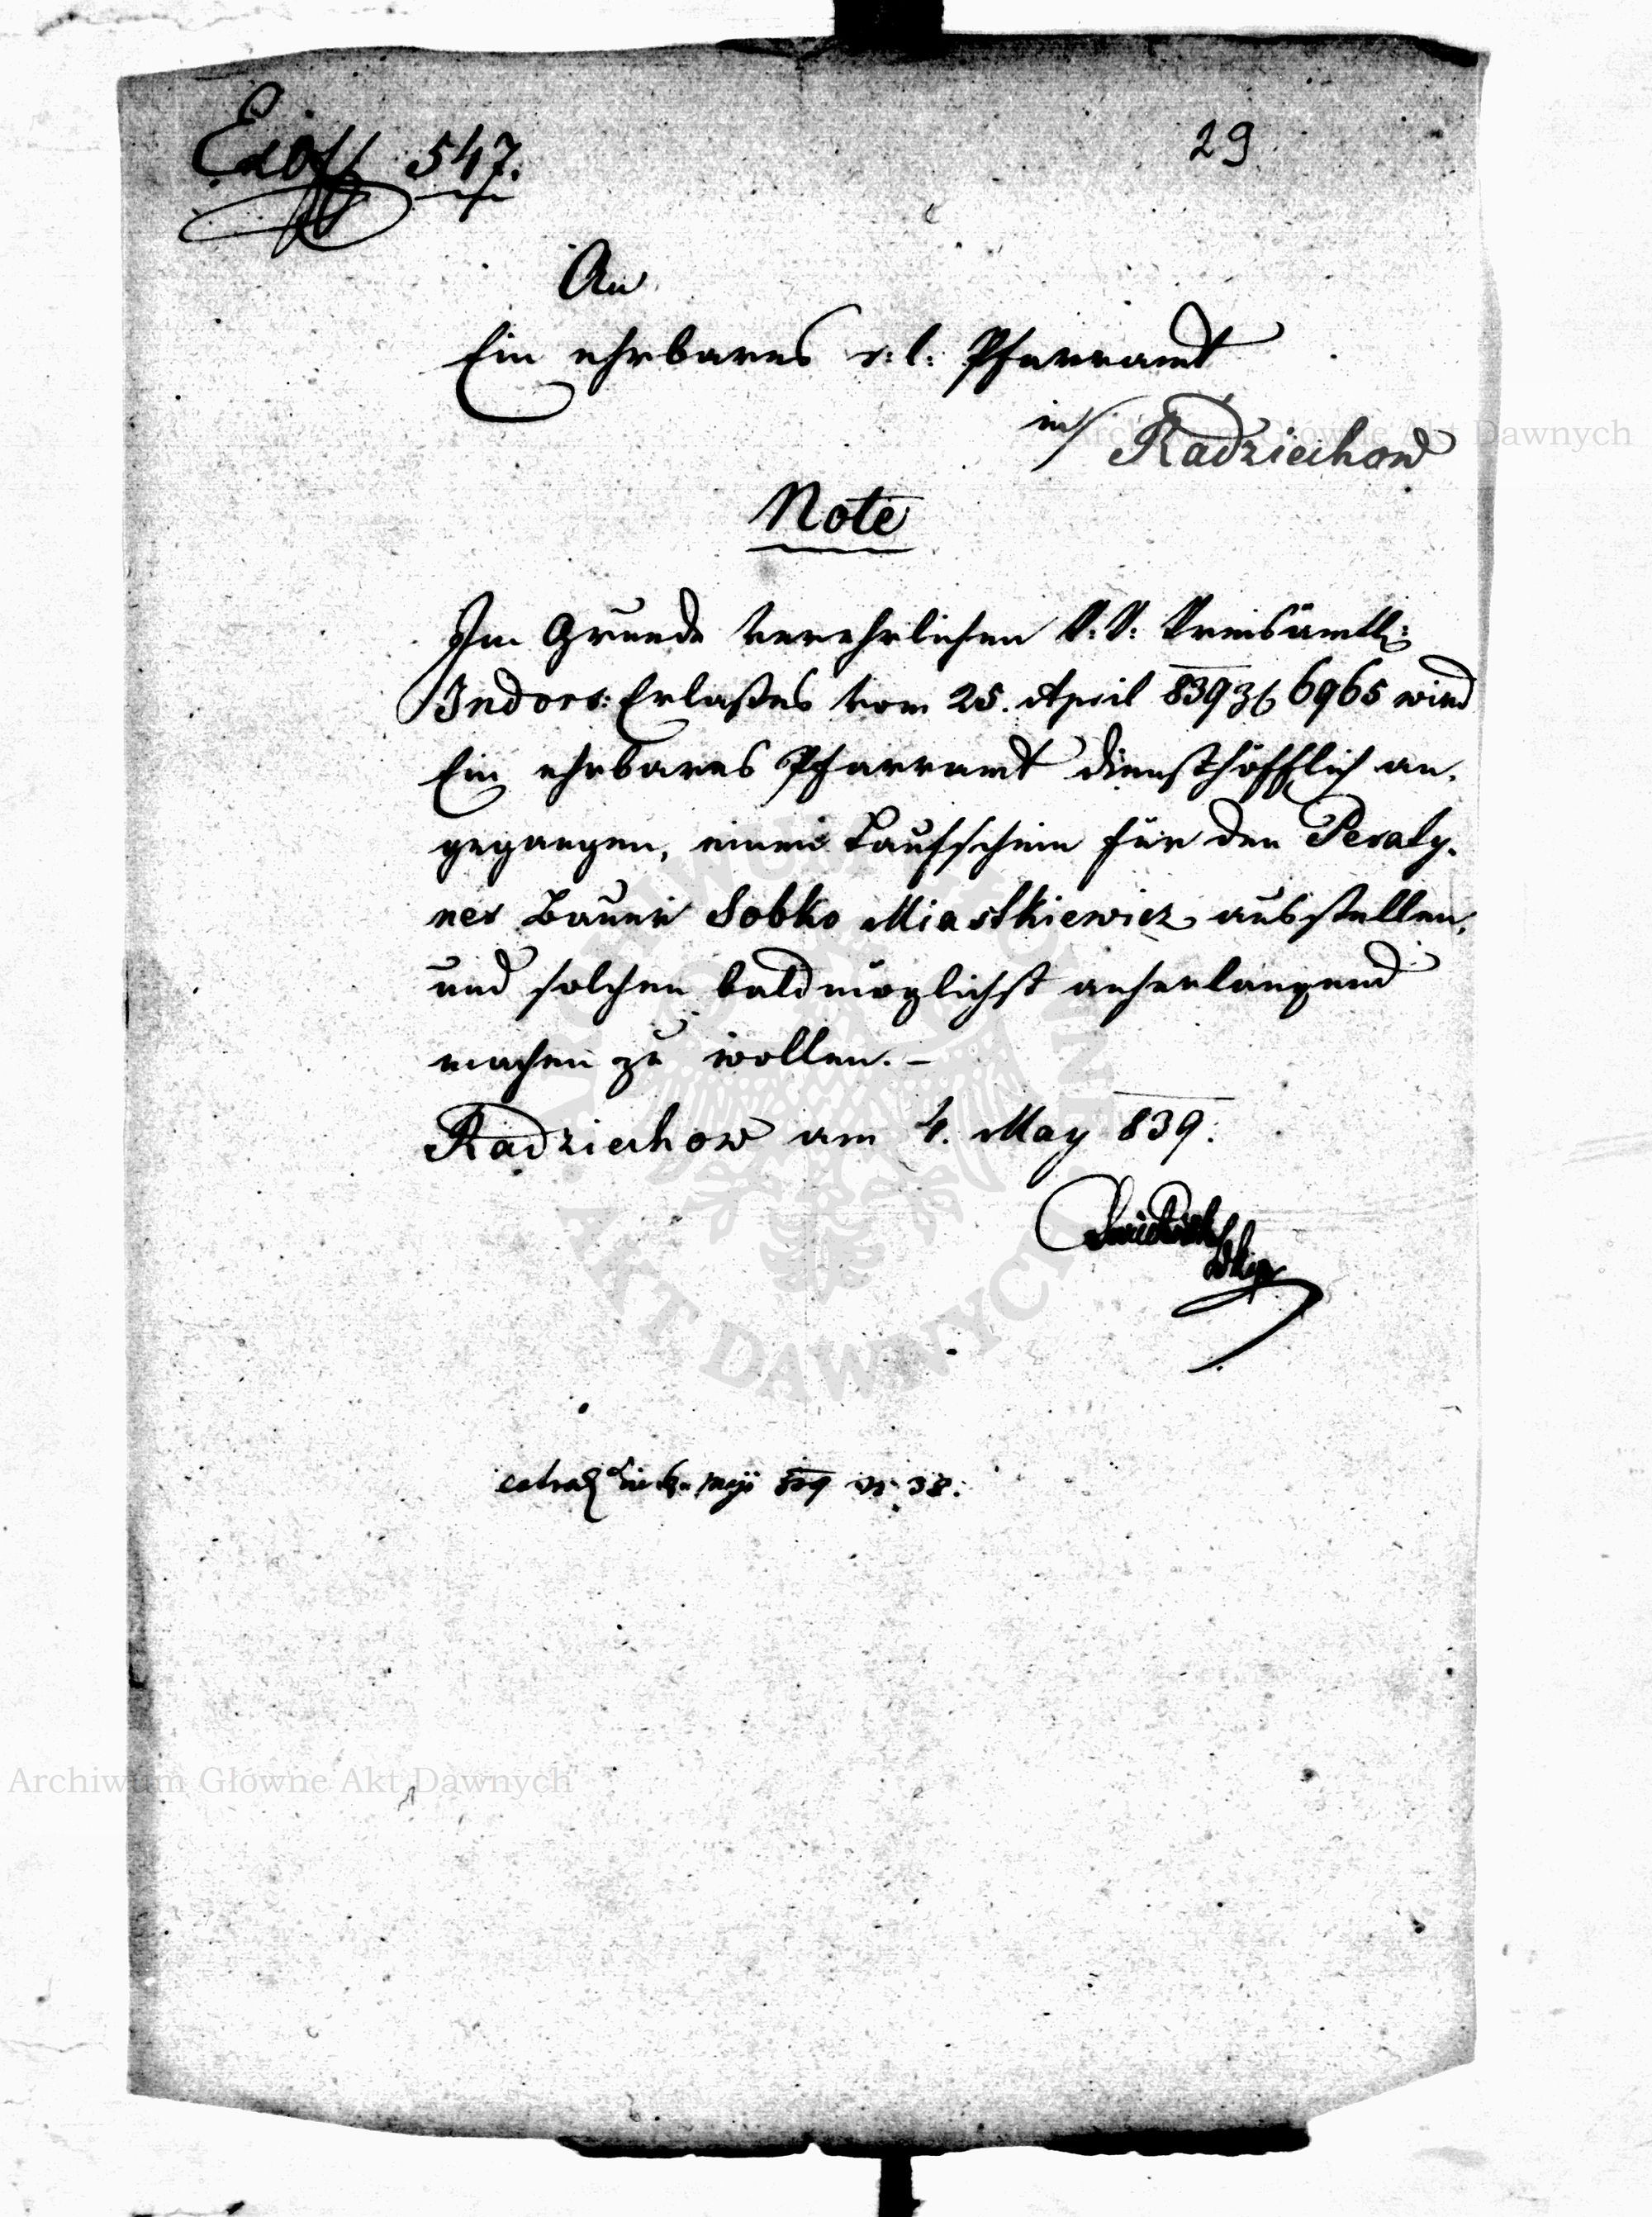 Exoff 547.
29
An
Ein ehrbares r: l: Pfarramt
in Radziechow
Note
Im Grunde verehrlichen k: k: Kreisämtl:
Indors: Erlaßes vom 25. April 839 Zl 6965 wird
Ein ehrbares Pfarramt diensthöfflich an-
gegangen, einen Taufschein für den Peraty-
ner Bauer Sobko Miastkiewicz ausstellen,
und solchen baldmöglichst anherlangend
machen zu wollen. –
Radziechow am 4. May 839.
839 38.
Archiwum Główne Akt Dawnych
Archiwum Główne Akt Dawnych
AKT DAWNYCH